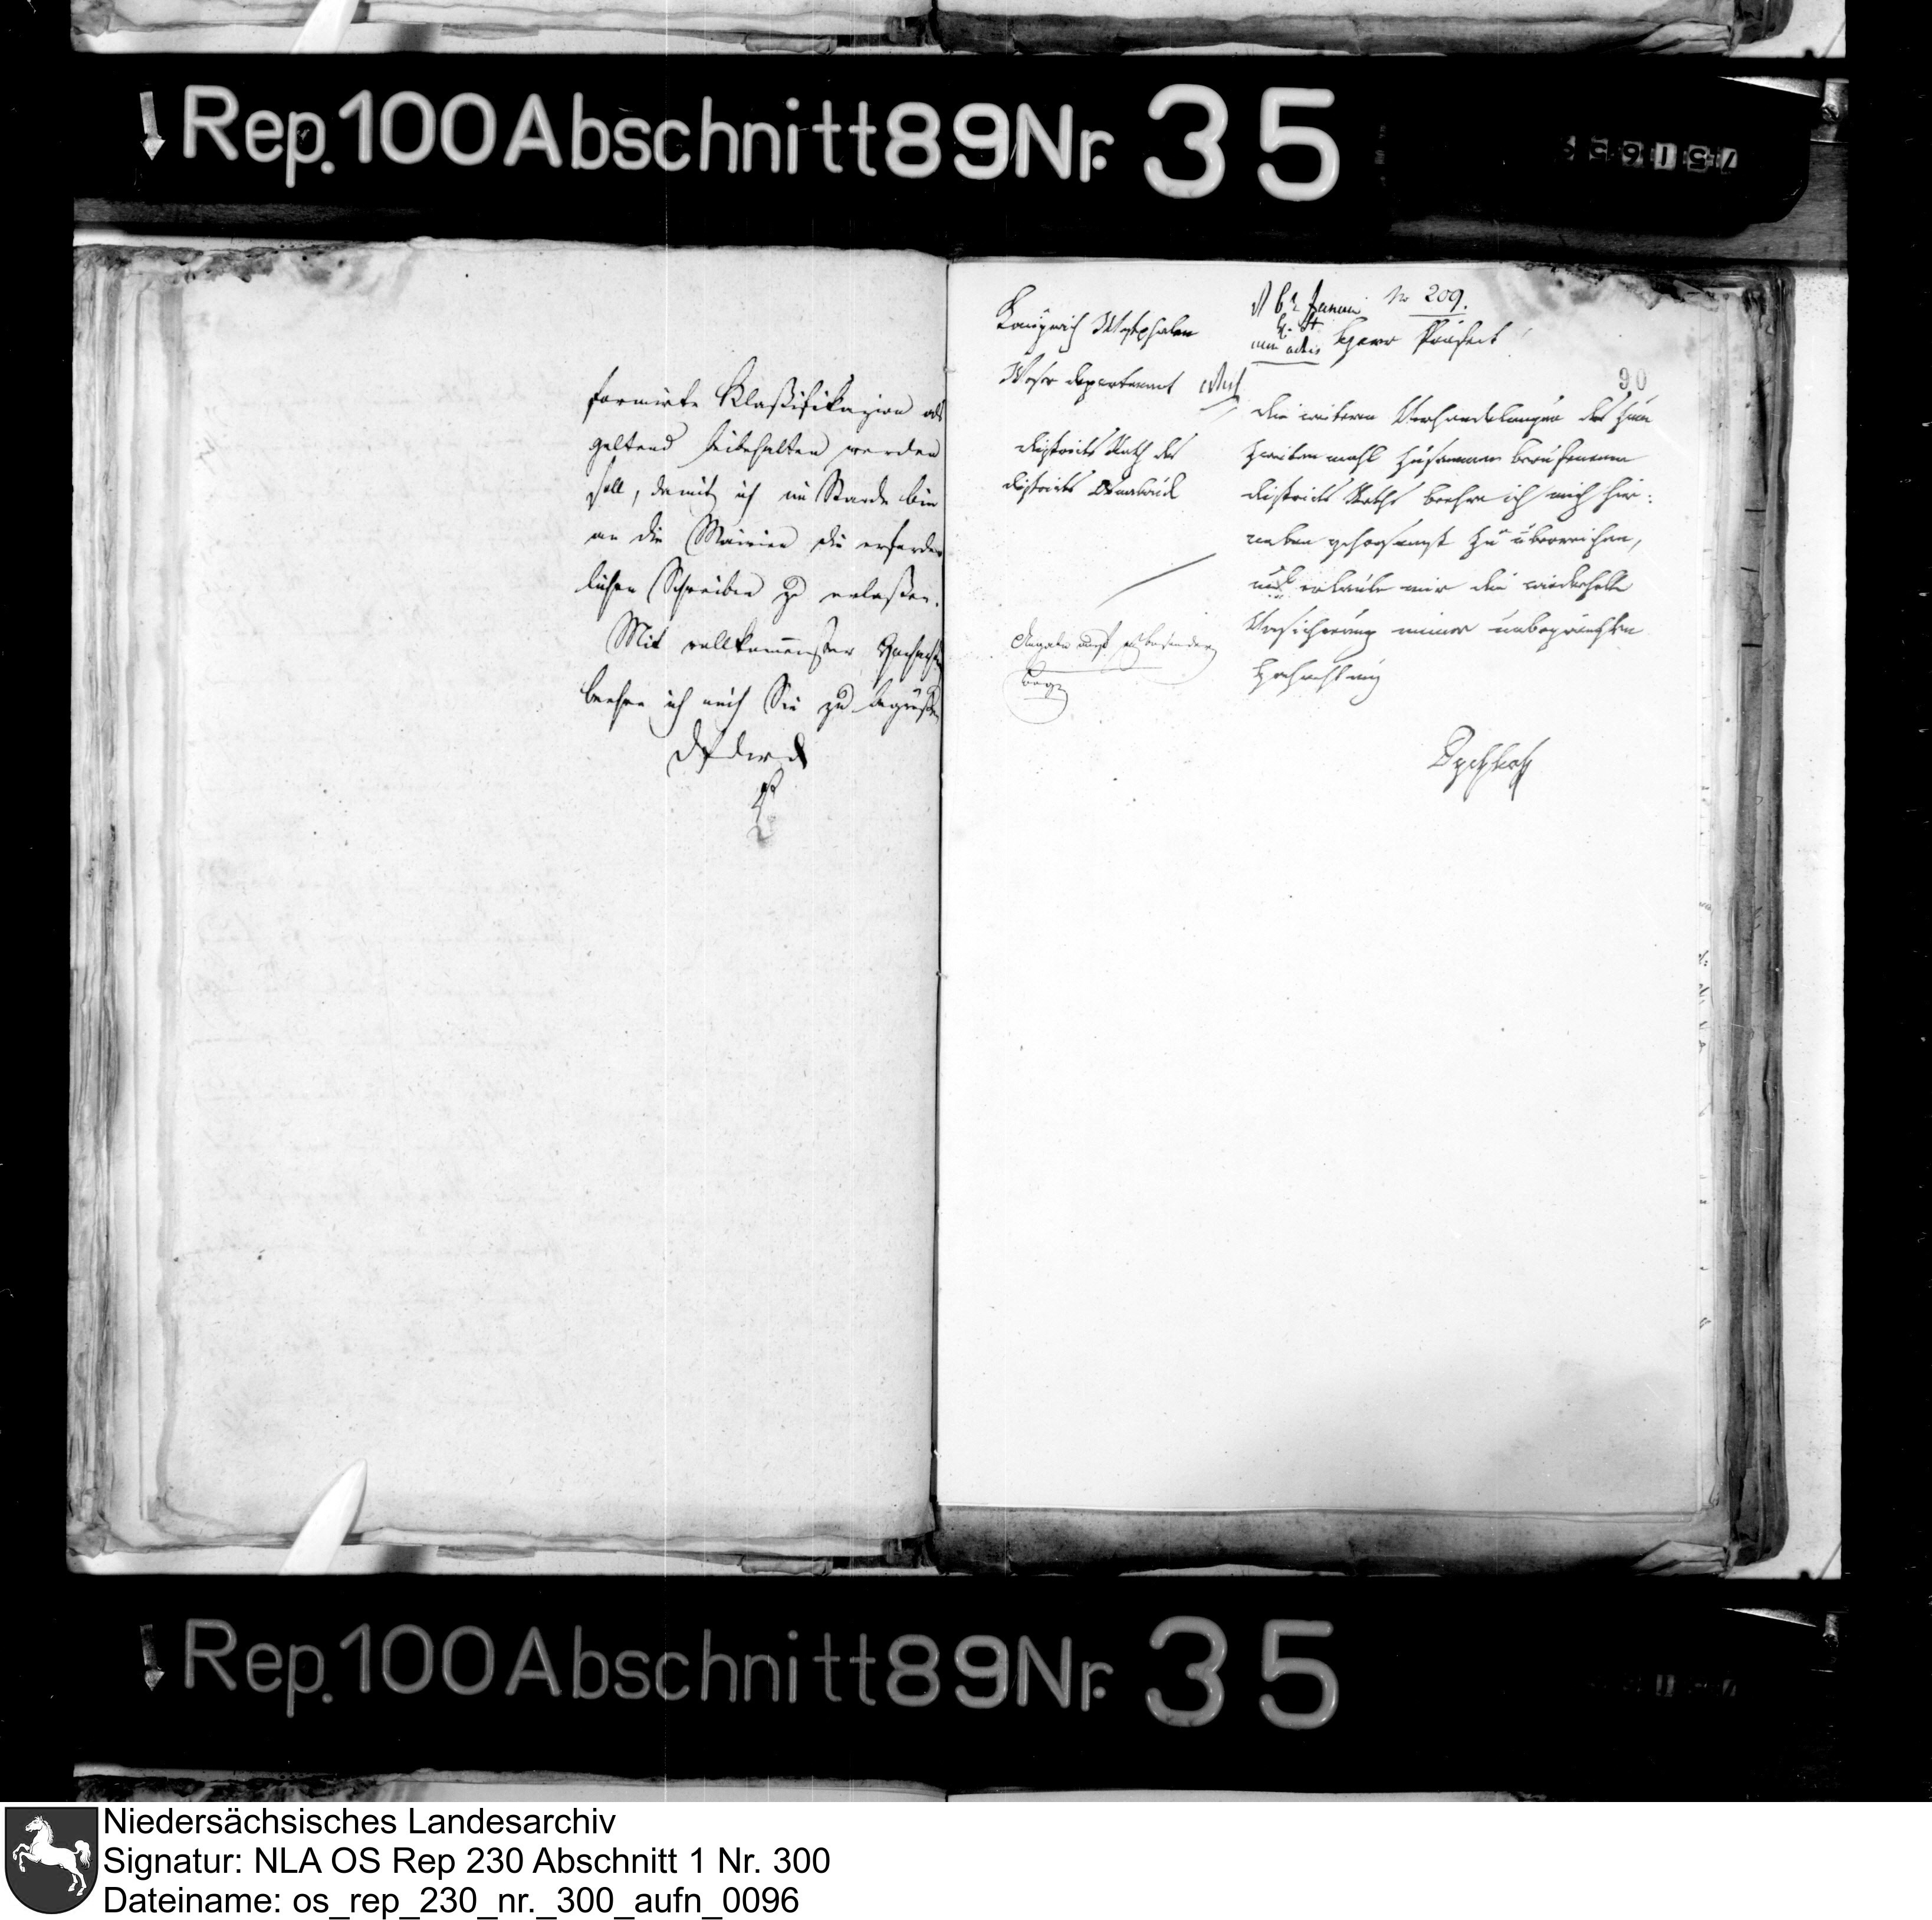 Rep. 100 Abschnitt 89 Nr. 35
formirte Klaßifikazion als
geltend beibehalten werden
soll, damit ich im Stande bin
an die Mairien die erforder
lichen Schreiben zu erlaßen.
Mit vollkommenster Hochacht
beehre ich mich Sie zu begrüßen
Königreich Westphalen
Weser Departement
Districts Rath des
Districts Osnabrück
Januar
No 209.
ad acta
Herr Präfect!
90
Die weitern Verhandelungen des zum
zweiten mahl zusammen berufenen
Districts Raths beehre ich mich hie:
neben gehorsamst zu überreichen,
und erlaube mir die wiederholte
Versicherung meiner unbegränzten
Hochachtung
Rep. 100 Abschnitt 89 Nr. 35
Niedersächsisches Landesarchiv
Signatur: NLA OS Rep 230 Abschnitt 1 Nr. 300
Dateiname: os_rep_230_nr._300_aufn_0096